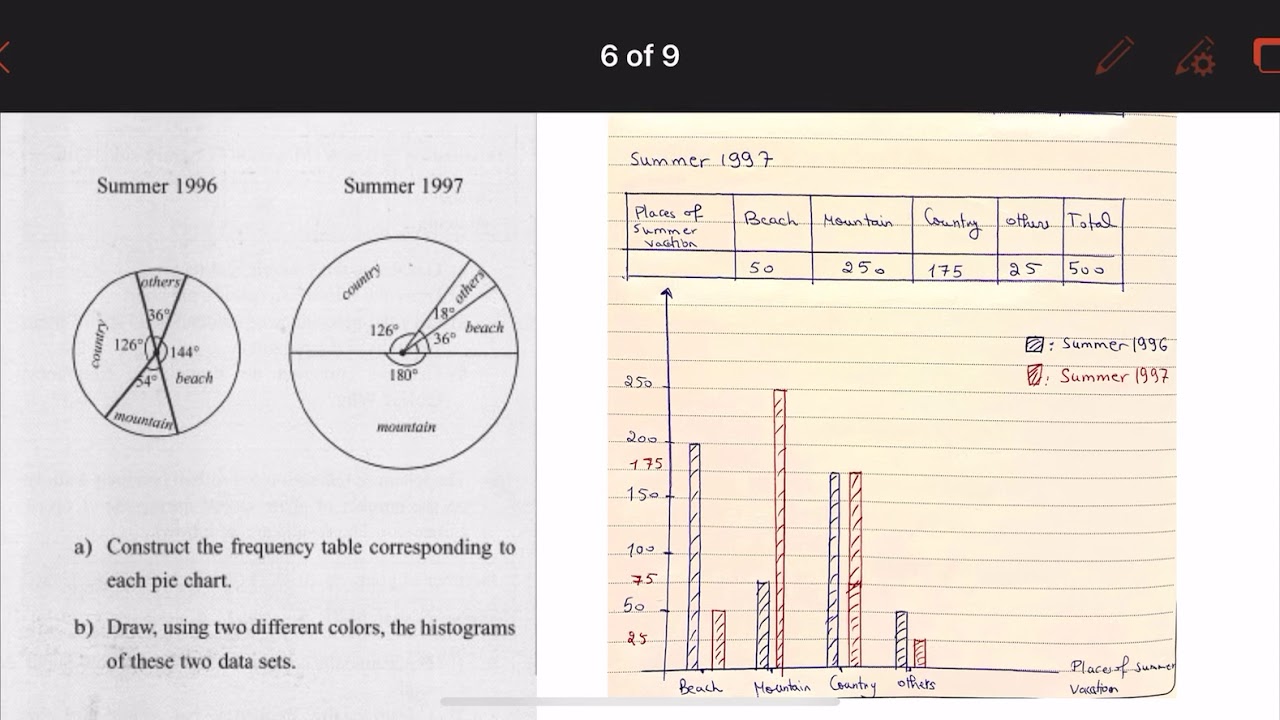 6 of 9
Summer 1996
Summer 1997
others
36°
country
126°
144°
54°
beach
mountain
country
others
18°
beach
126°
36°
180°
mountain
a) Construct the frequency table corresponding to
each pie chart.
b) Draw, using two different colors, the histograms
of these two data sets.
Summer 1997
Places of Summer vacation Beach Mountain Country others Total
50 250 175 25 500
: Summer 1996
: Summer 1997
250
200
175
150
100
75
50
25
Beach Mountain Country others
Places of Summer
Vacation